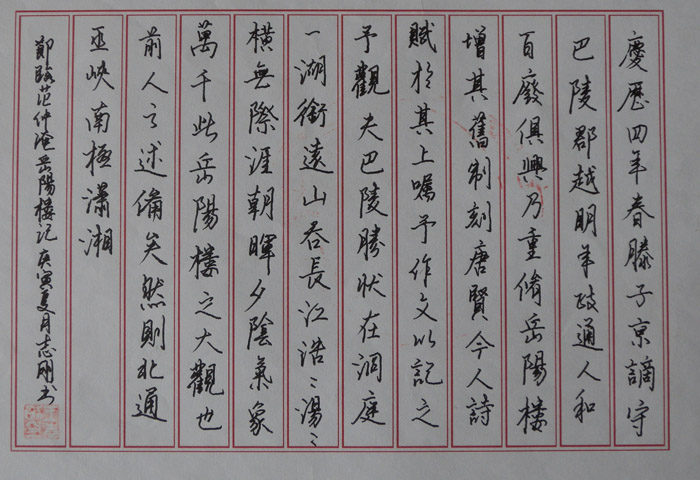 慶歷四年春滕子京謫守
巴陵郡越明年政通人和
百廢俱興乃重脩岳陽樓
增其舊制刻唐賢今人詩
賦於其上囑予作文以記之
予觀夫巴陵勝狀在洞庭
一湖銜遠山吞長江浩〻湯〻
橫無際涯朝暉夕陰氣象
萬千此岳陽樓之大觀也
前人之述備矣然則北通
巫峽南極瀟湘
節臨范仲淹岳陽樓記庚寅夏月志剛書